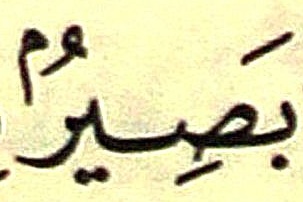 بَصِيرُۢ